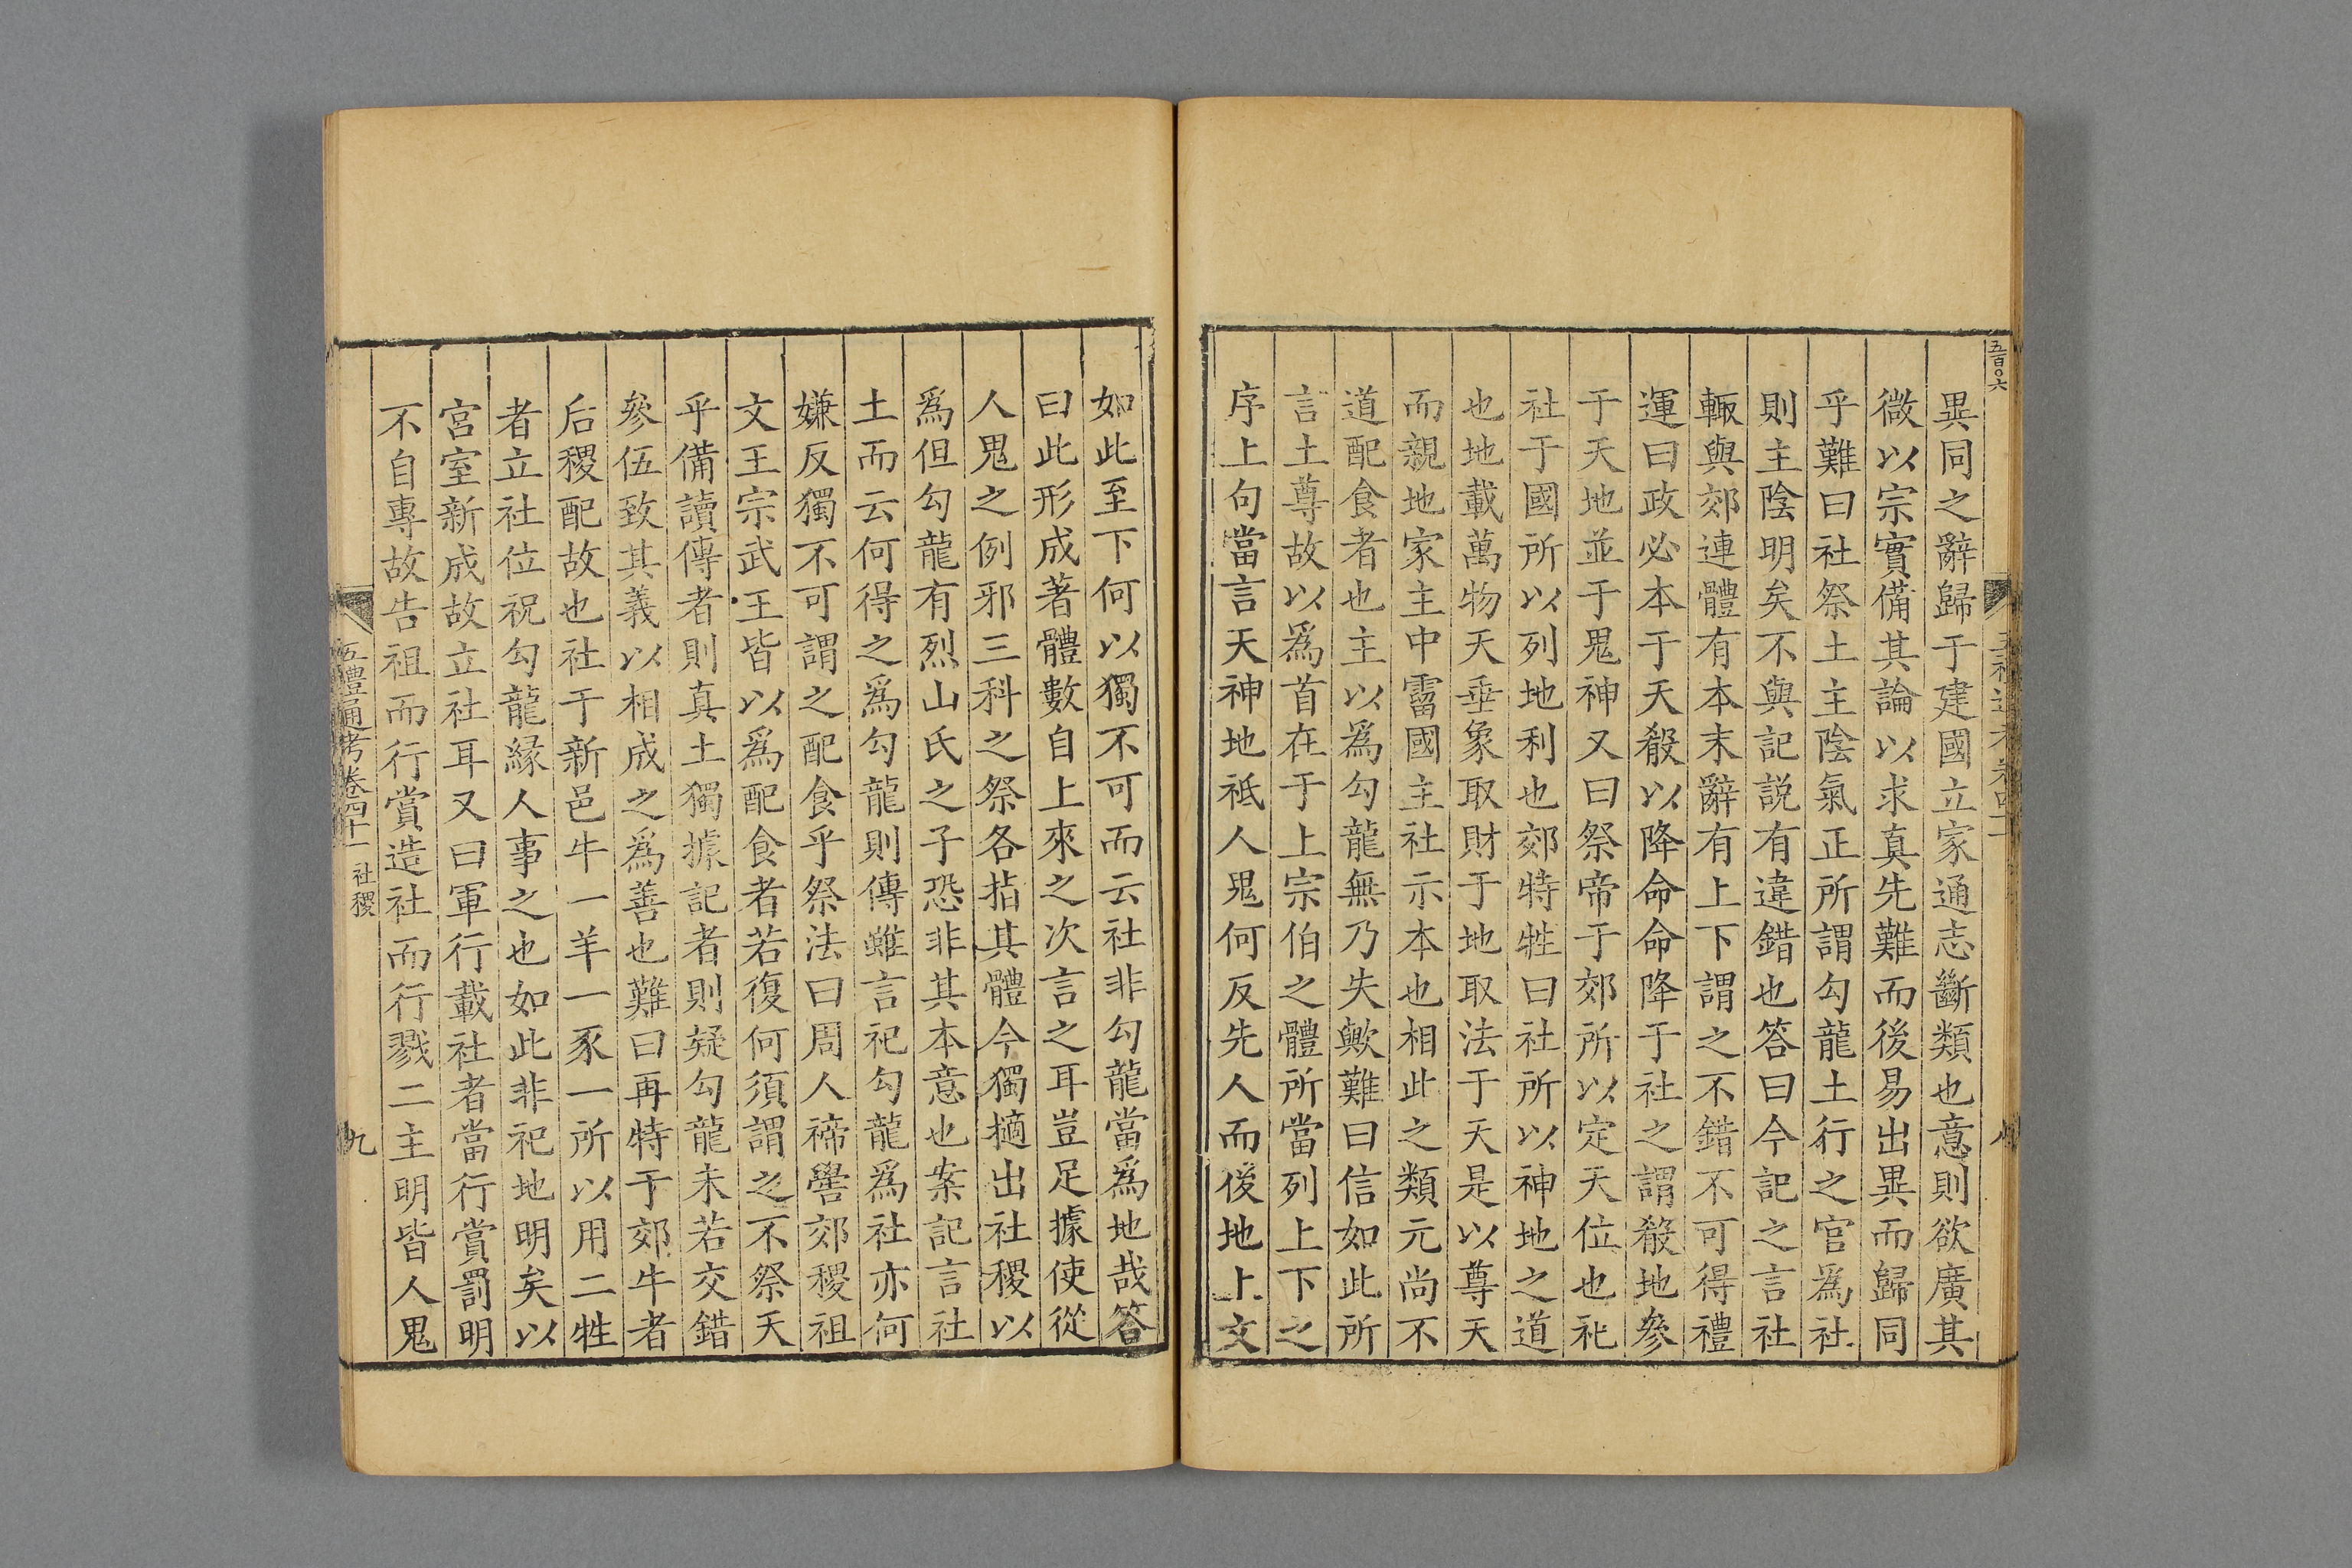 五百〇六
異同之辭歸于建國立家通志斷類也意則欲廣其
微以宗實備其論以求真先難而後易出異而歸同
乎難曰社祭土主陰氣正所謂勾龍土行之官爲社
則主陰明矣不與記説有違錯也答曰今記之言社
輙與郊連體有本末辭有上下謂之不錯不可得禮
運曰政必本于天殽以降命命降于社之謂殽地參
于天地並于鬼神又曰祭帝于郊所以定天位也祀
社于國所以列地利也郊特牲曰社所以神地之道
也地載萬物天垂象取財于地取法于天是以尊天
而親地家主中霤國主社示本也相此之類元尚不
道配食者也主以爲勾龍無乃失歟難曰信如此所
言土尊故以爲首在于上宗伯之體所當列上下之
序上句當言天神地祇人鬼何反先人而後地上文
如此至下何以獨不可而云社非勾龍當爲地哉答
曰此形成著體數自上來之次言之耳豈足據使從
人鬼之例邪三科之祭各指其體今獨擿出社稷以
爲但勾龍有烈山氏之子恐非其本意也案記言社
土而云何得之爲勾龍則傳雖言祀勾龍爲社亦何
嫌反獨不可謂之配食乎祭法曰周人禘嚳郊稷祖
文王宗武王皆以爲配食者若復何須謂之不祭天
乎備讀傳者則真土獨據記者則疑勾龍未若交錯
參伍致其義以相成之爲善也難曰再特于郊牛者
后稷配故也社于新邑牛一羊一豕一所以用二牲
者立社位祝勾龍緣人事之也如此非祀地明矣以
宮室新成故立社耳又曰軍行載社者當行賞罰明
不自專故告祖而行賞造社而行戮二主明皆人鬼
五禮通考卷四十一 社稷 九